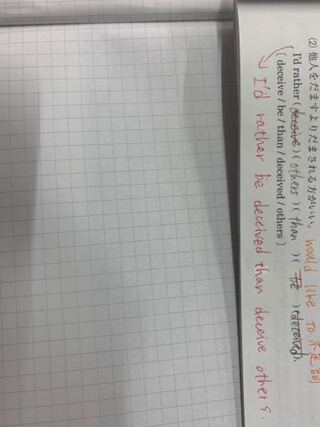 (2) 他人をだますよりだまされる方がいい。 would like to 不定詞
I'd rather (deceive)(others)(than)( be )(deceived).
[ deceive / be / than / deceived / others ]
I'd rather be deceived than deceive others.